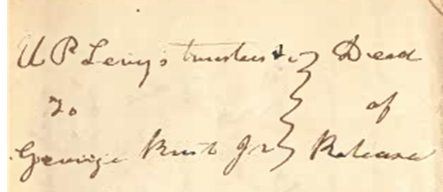 U P Levy's trustees &c } Deed
To } of
George Rust Jr } Release